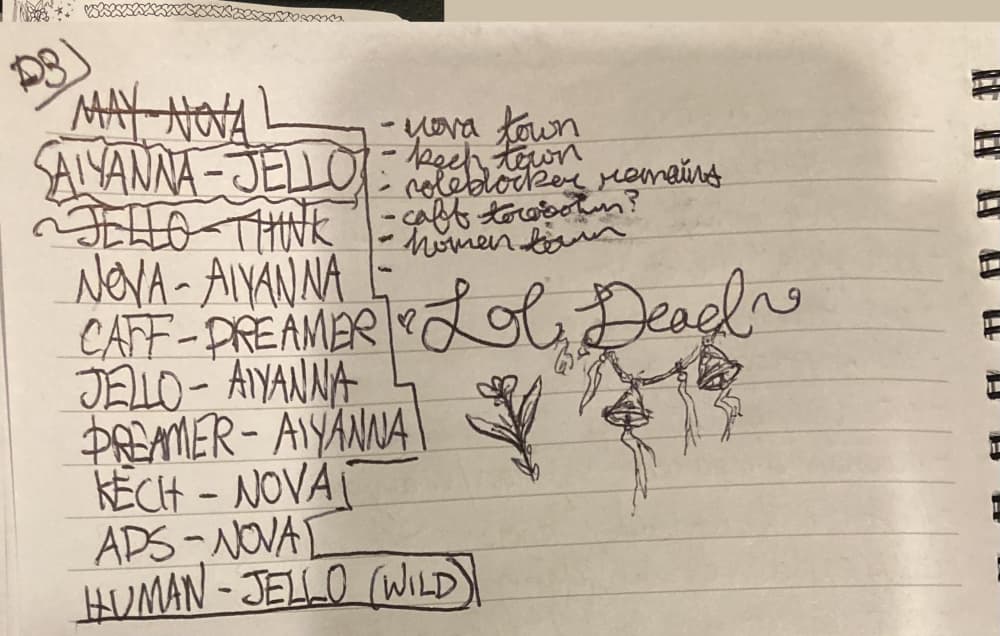 D3)
MAY-NOVA
AIYANNA-JELLO
JELLO-THINK
NOVA-AIYANNA
CAFF-DREAMER
JELLO-AIYANNA
DREAMER-AIYANNA
KECH-NOVA
ADS-NOVA
HUMAN-JELLO (WILD)
- nova town
- kech town
- roleblocker remains
- caff town?
- homen town
-
Lol, Dead